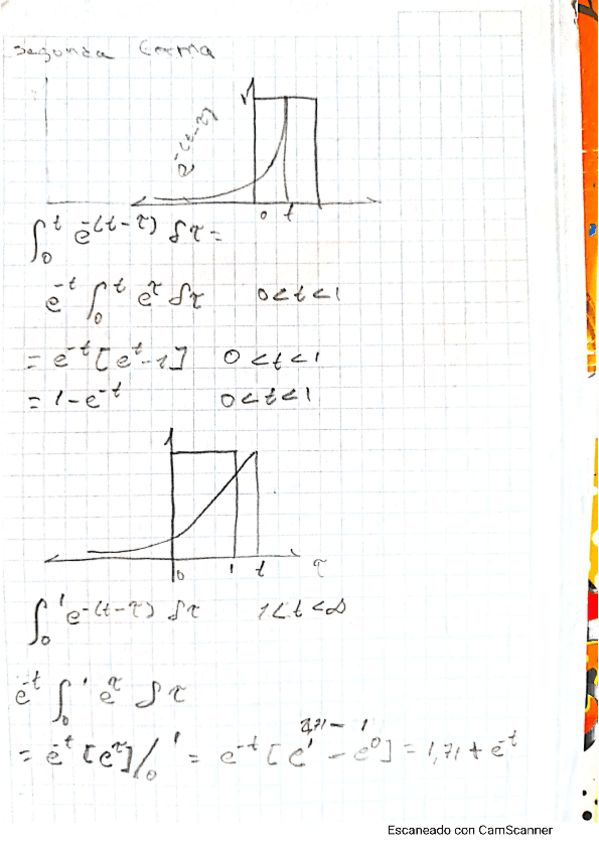 Segunda forma
1
e^-(t-τ)
0 t
∫₀ᵗ e^-(t-τ) δτ =
e^-t ∫₀ᵗ e^τ δτ 0<t<1
= e^-t [e^t - 1] 0<t<1
= 1 - e^-t 0<t<1
1
0 1 t τ
∫₀¹ e^-(t-τ) δτ 1<t<∞
e^-t ∫₀¹ e^τ δτ
2,71 - 1
= e^-t [e^τ]/₀¹ = e^-t [e¹ - e⁰] = 1,71 + e^-t
Escaneado con CamScanner